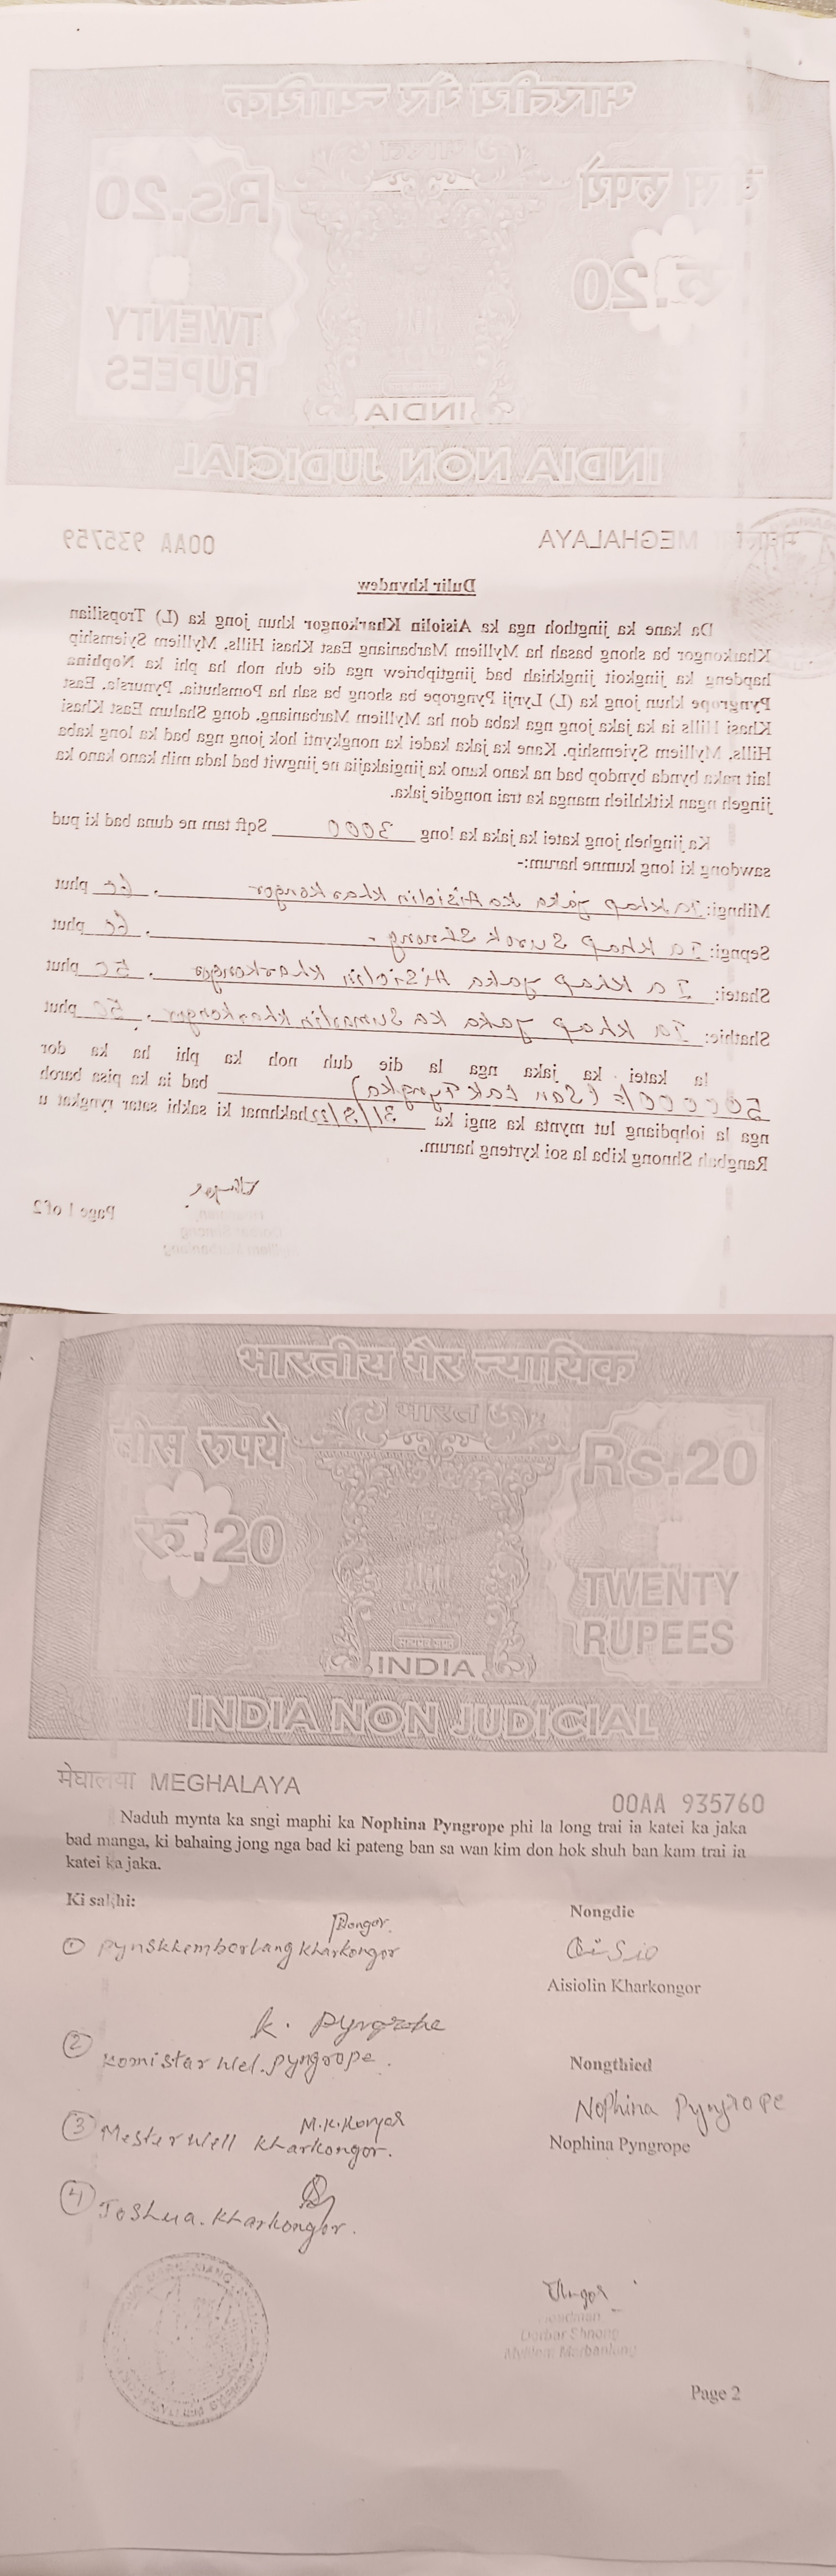 भारतीय गैर न्यायिक
भारत
बीस रुपये
Rs.20
रु.20
TWENTY
RUPEES
INDIA
INDIA NON JUDICIAL
MEGHALAYA
00AA 935759
Dulir khyndew
Da kane ka jingthoh nga ka Aisiolin Kharkongor khun jong ka (L) Tropsilian
Kharkongor ba shong basah ha Mylliem Marbaniang East Khasi Hills, Mylliem Syiemship
hapdeng ka jingkoit jingkhiah bad jingtipbriew nga die duh noh ha phi ka Nophina
Pyngrope khun jong ka (L) Lynji Pyngrope ba shong ba sah ha Pomshutia, Pynursla, East
Khasi Hills ia ka jaka jong nga kaba don ha Mylliem Marbaniang, dong Shalum East Khasi
Hills, Mylliem Syiemship. Kane ka jaka kadei ka nongkynti hok jong nga bad ka long kaba
lait naka bynda byndop bad na kano kano ka jingiakajia ne jingwit bad lada mih kano kano ka
jingeh ngan kitkhlieh manga ka trai nongdie jaka.
Ka jingheh jong katei ka jaka ka long 3000 Sqft tam ne duna bad ki pud
sawdong ki long kumne harum:-
Mihngi: Ia khap jaka ka Aisiolin kharkongor. 60 phut
Sepngi: Ia khap Surok Shnong. 60 phut
Shatei: Ia khap jaka AiSiolin kharkongor. 50 phut
Shathie: Ia khap jaka ka Sumarlin kharkongor. 50 phut
Ia katei ka jaka nga la die duh noh ka phi ha ka dor
500000/= (San Lak Tyngka) bad ia ka pisa baroh
nga la iohpdiang lut mynta ka sngi ka 31/8/22 hakhmat ki sakhi satar ryngkat u
Rangbah Shnong kiba la soi kyrteng harum.
Page 1 of 2
भारतीय गैर न्यायिक
भारत
बीस रुपये
Rs.20
रु.20
TWENTY
RUPEES
सत्यमेव जयते
INDIA
INDIA NON JUDICIAL
मेघालया MEGHALAYA
00AA 935760
Naduh mynta ka sngi maphi ka Nophina Pyngrope phi la long trai ia katei ka jaka
bad manga, ki bahaing jong nga bad ki pateng ban sa wan kim don hok shuh ban kam trai ia
katei ka jaka.
Ki sakhi:
Nongdie
① Pynskhemborlang Kharkongor
Aisio
Aisiolin Kharkongor
K. Pyngrope
② Komistar Wel. Pyngrope.
Nongthied
Nophina Pyngrope
Nophina Pyngrope
③ Mesterwell Kharkongor.
④ Joshua. Kharkongor.
Headman
Dorbar Shnong
Page 2